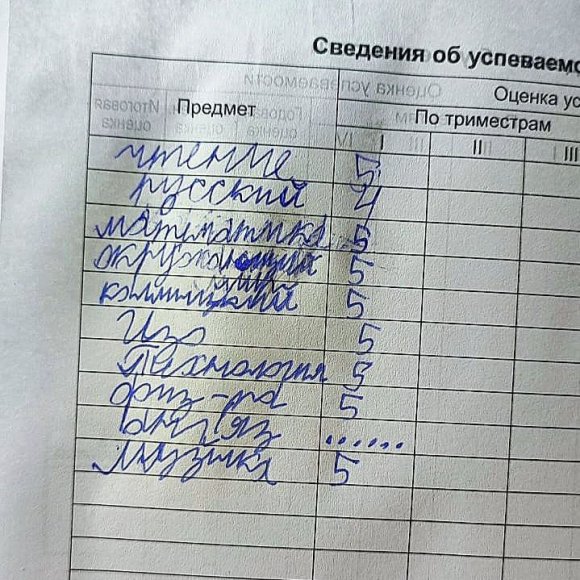 Сведения об успеваемо
Предмет
Оценка ус
По триместрам
I
II
III
чтение 5
русский 4
математика 5
окружающий 5
мир
калмыцкий 5
Изо 5
Технология 5
физ-ра 5
англ яз ......
Музыка 5